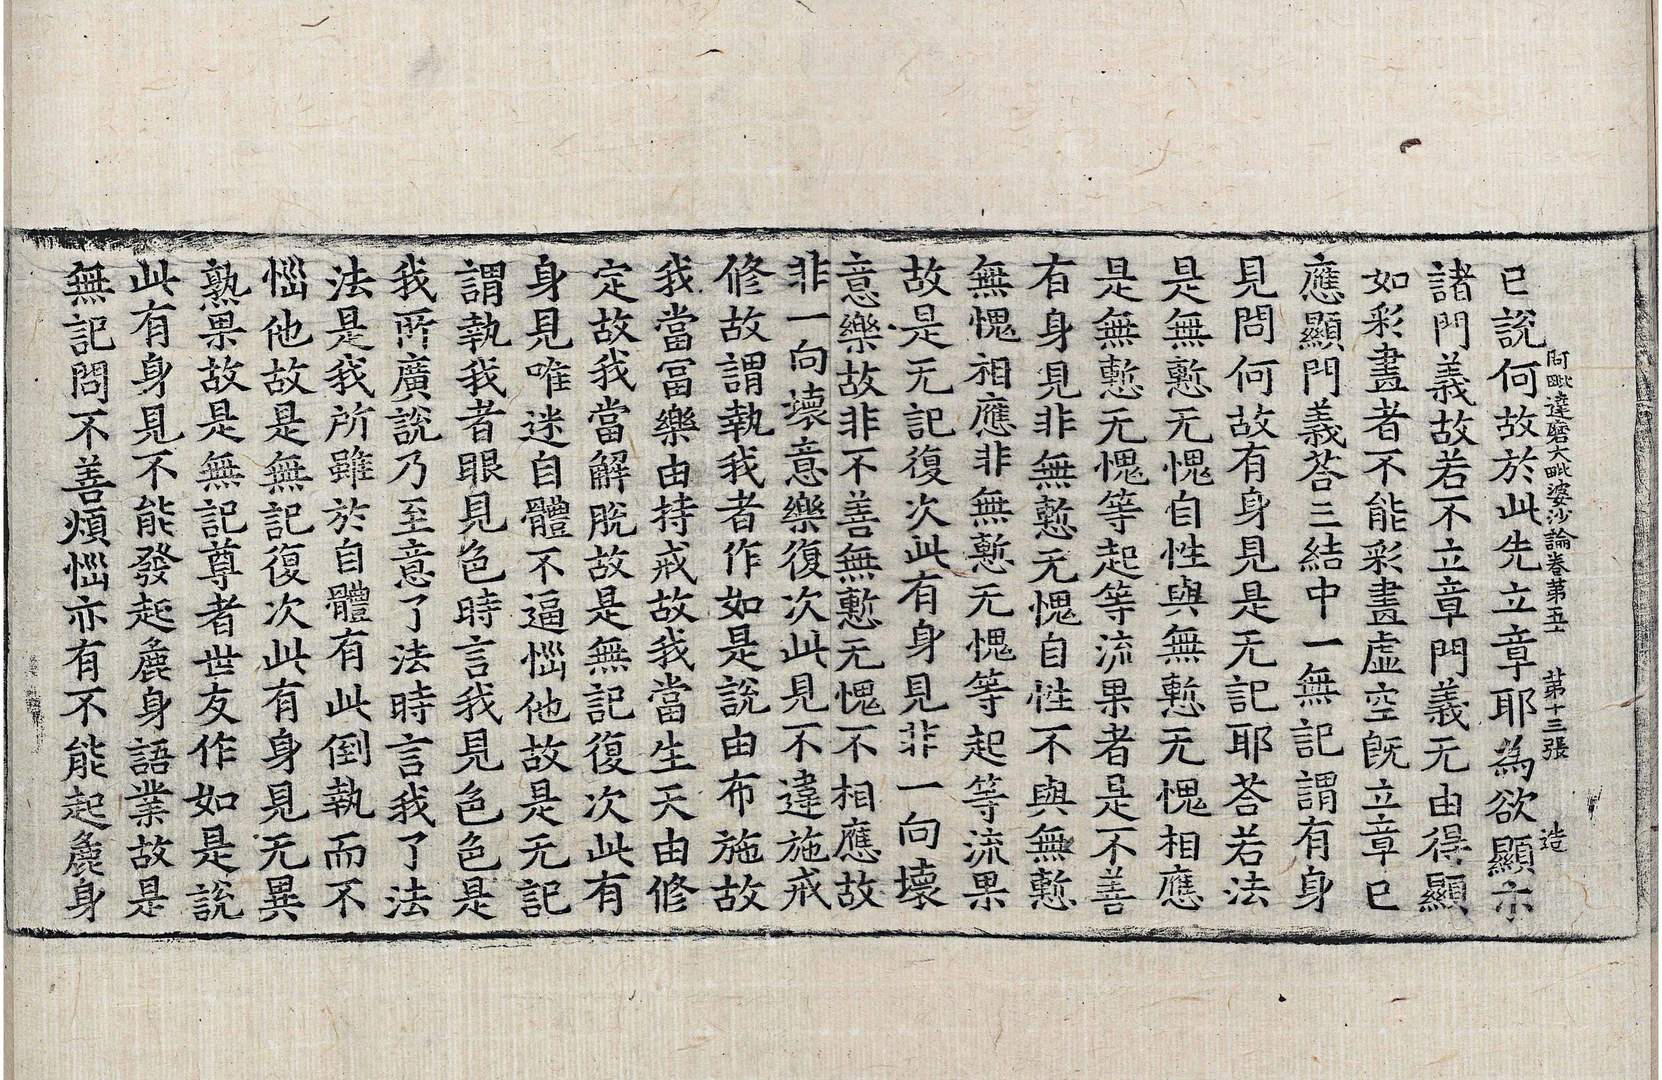 阿毗達磨大毗婆沙論卷第五十 第十三張 造
已說何故於此先立章耶為欲顯示
諸門義故若不立章門義无由得顯
如彩畫者不能彩畫虛空既立章已
應顯門義荅三結中一無記謂有身
見問何故有身見是无記耶荅若法
是無慙无愧自性與無慙无愧相應
是無慙无愧等起等流果者是不善
有身見非無慙无愧自性不與無慙
無愧相應非無慙无愧等起等流果
故是无記復次此有身見非一向壞
意樂故非不善無慙无愧不相應故
非一向壞意樂復次此見不違施戒
修故謂執我者作如是說由布施故
我當富樂由持戒故我當生天由修
定故我當解脫故是無記復次此有
身見唯迷自體不逼惱他故是无記
謂執我者眼見色時言我見色色是
我所廣說乃至意了法時言我了法
法是我所雖於自體有此倒執而不
惱他故是無記復次此有身見无異
熟果故是無記尊者世友作如是說
此有身見不能發起麁身語業故是
無記問不善煩惱亦有不能起麁身